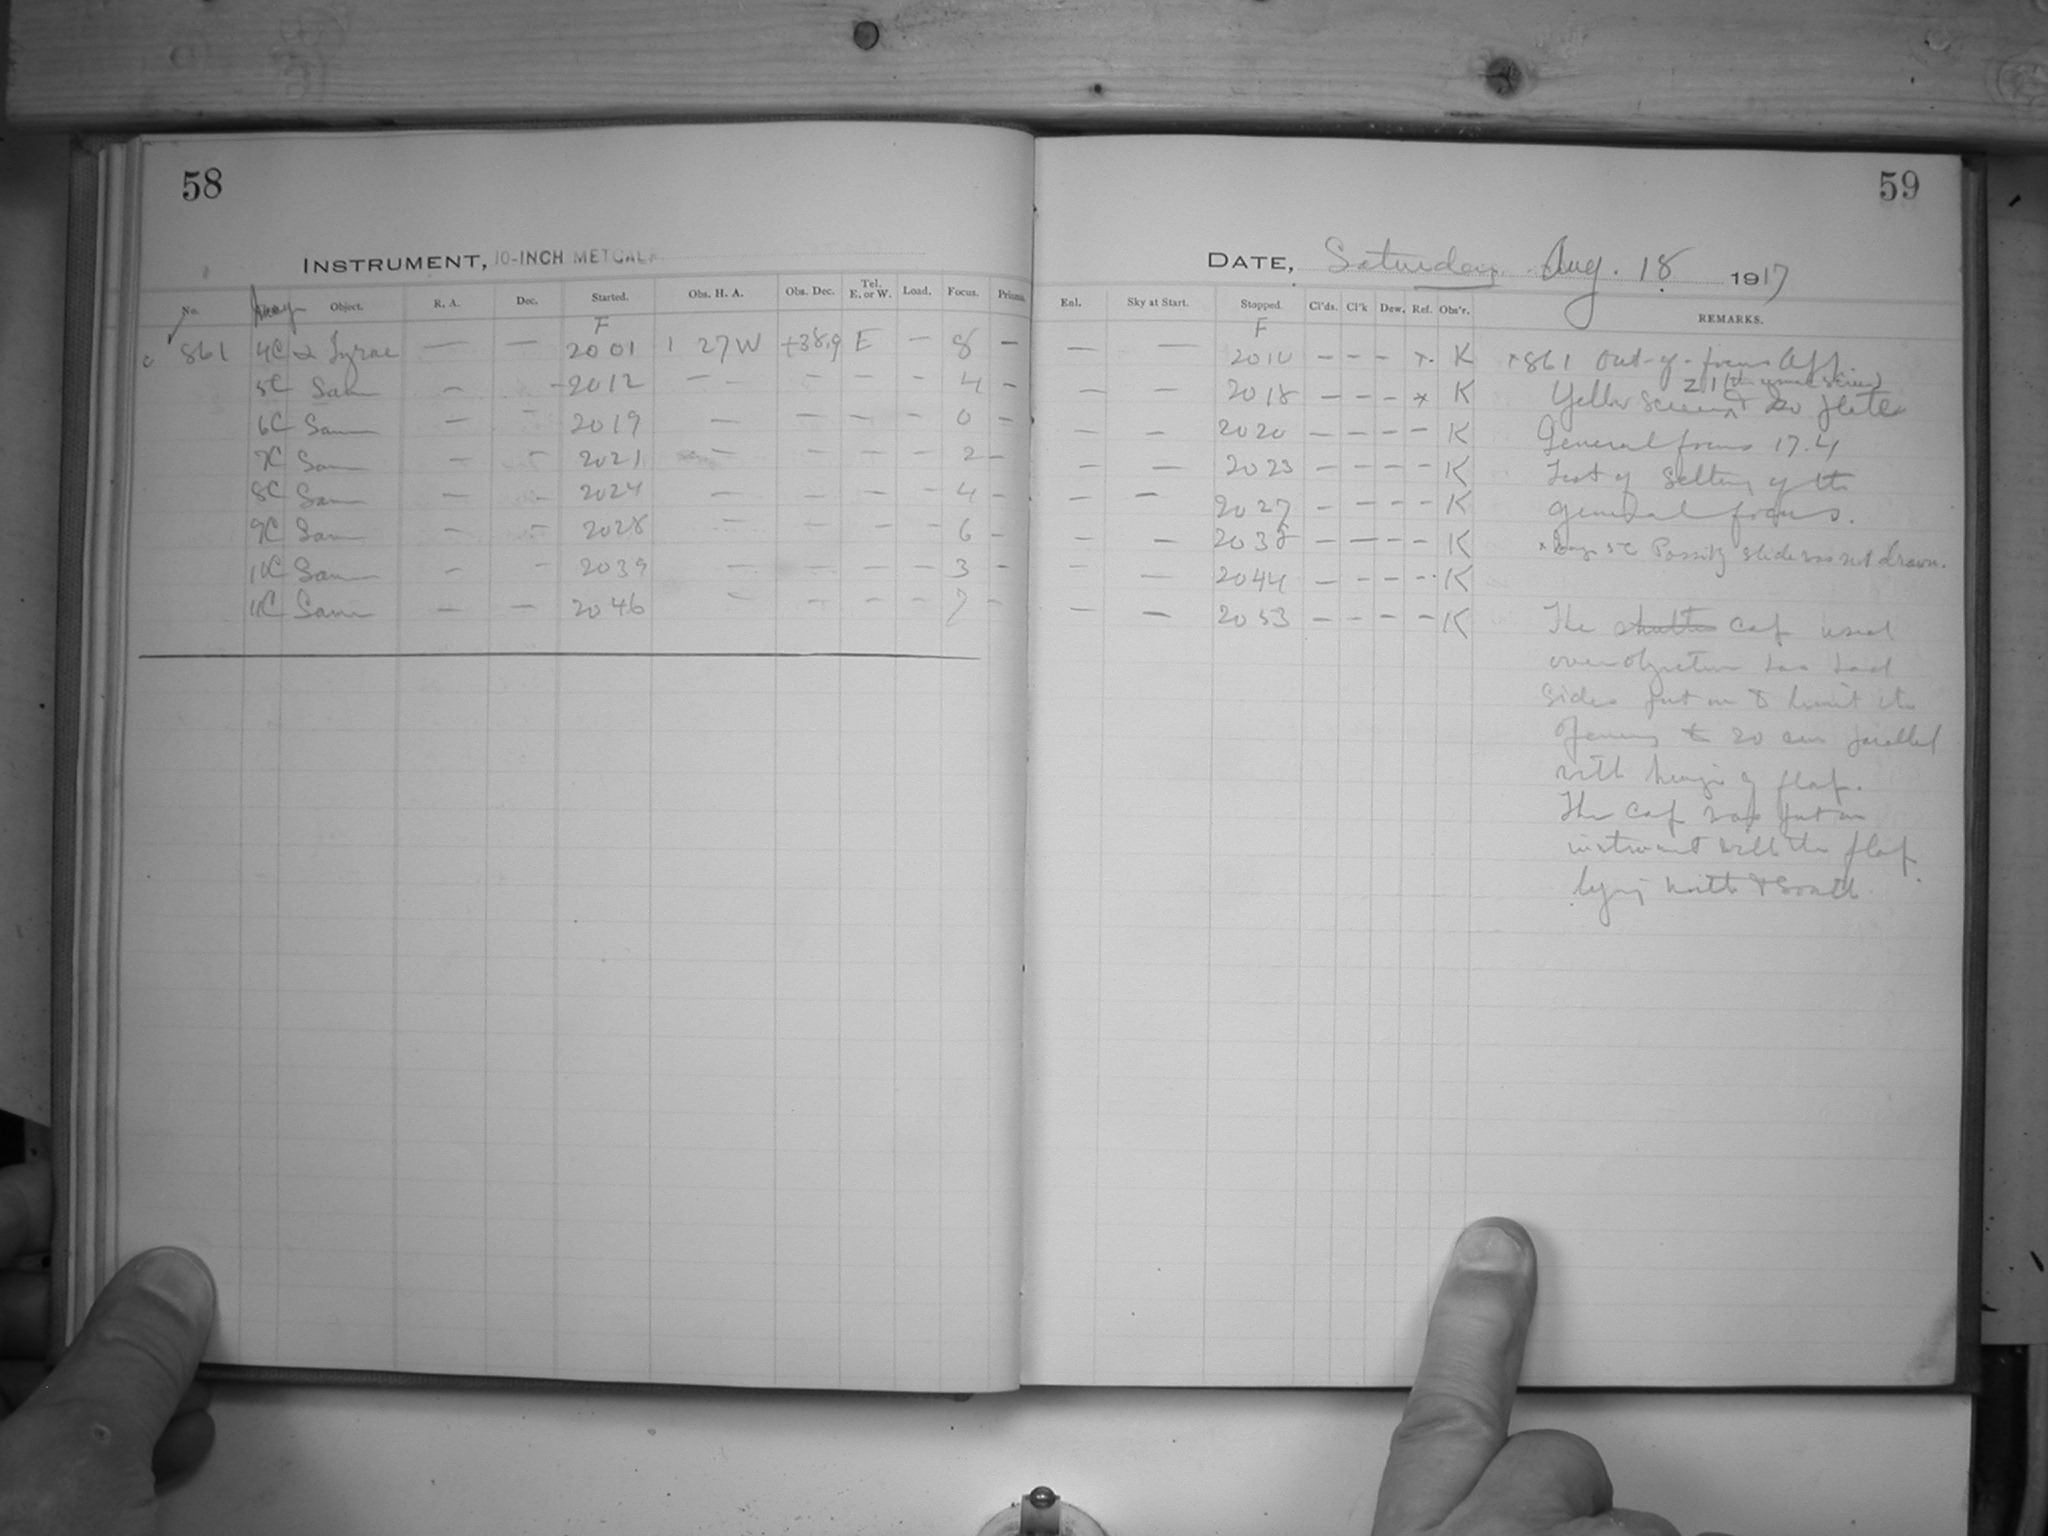 58
INSTRUMENT, 10-INCH METCALF
No. Image Object. R. A. Dec. Started. Obs. H. A. Obs. Dec. Tel. E. or W. Load. Focus. Prisms.
F
861 4C α Lyrae — — 2001 1 27W +38.9 E — 8 —
5C Same - - 2012 — - - - 4 -
6C Same - - 2019 — - - - 0 -
7C Same - - 2021 — - - - 2 -
8C Same - - 2024 — - - - 4 -
9C Same - - 2028 — - - - 6 -
10C Same - - 2039 — - - - 3 -
11C Same - - 2046 — - - - 7 -
59
DATE, Saturday Aug. 18 1917
Enl. Sky at Start. Stopped. Cl'ds. Cl'k Dew. Ref. Obs'r. REMARKS.
F
— — 2010 - - - x. K
— — 2018 - - - x K
- - 2020 - - - - K
- - 2023 - - - - K
- - 2027 - - - - K
- - 2038 - - - - K
- - 2044 - - - - K
- - 2053 - - - - K
x861 Out-of-focus App.
Yellow Screen & Iso plate
General focus 17.4
Test of setting of the
general focus.
x Image 5C Possibly slide was not drawn.
The shutter cap used
over objective has had
sides put on to limit its
opening to 20 cm parallel
with hinge of flap.
The cap was put on
instrument with the flap
lying north & south